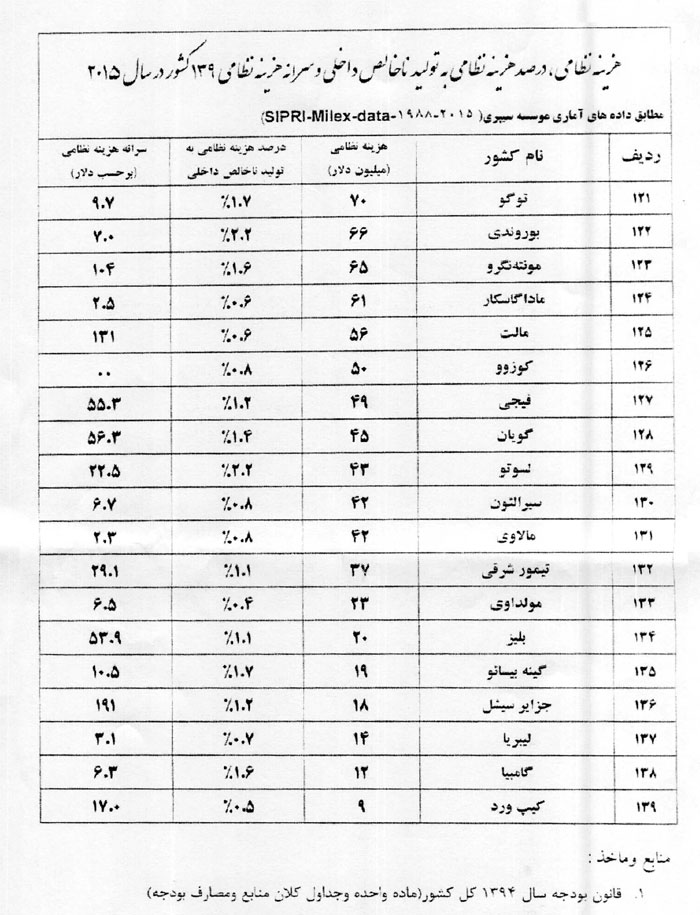 هزینه نظامی، درصد هزینه نظامی به تولید ناخالص داخلی و سرانه هزینه نظامی ۱۳۹ کشور در سال ۲۰۱۵
مطابق داده های آماری موسسه سیپری( SIPRI-Milex-data-۱۹۸۸-۲۰۱۵)
ردیف نام کشور هزینه نظامی (میلیون دلار) درصد هزینه نظامی به تولید ناخالص داخلی سرانه هزینه نظامی (برحسب دلار)
۱۲۱ توگو ۷۰ ٪۱.۷ ۹.۷
۱۲۲ بوروندی ۶۶ ٪۲.۲ ۷.۰
۱۲۳ مونته‌نگرو ۶۵ ٪۱.۶ ۱۰۴
۱۲۴ ماداگاسکار ۶۱ ٪۰.۶ ۲.۵
۱۲۵ مالت ۵۶ ٪۰.۶ ۱۳۱
۱۲۶ کوزوو ۵۰ ٪۰.۸ ..
۱۲۷ فیجی ۴۹ ٪۱.۲ ۵۵.۳
۱۲۸ گویان ۴۵ ٪۱.۴ ۵۶.۳
۱۳۹ لسوتو ۴۳ ٪۲.۲ ۲۲.۵
۱۳۰ سیرالئون ۴۲ ٪۰.۸ ۶.۷
۱۳۱ مالاوی ۴۲ ٪۰.۸ ۲.۳
۱۳۲ تیمور شرقی ۳۷ ٪۱.۱ ۲۹.۱
۱۳۳ مولداوی ۲۳ ٪۰.۴ ۶.۵
۱۳۴ بلیز ۲۰ ٪۱.۱ ۵۳.۹
۱۳۵ گینه بیسائو ۱۹ ٪۱.۷ ۱۰.۵
۱۳۶ جزایر سیشل ۱۸ ٪۱.۲ ۱۹۱
۱۳۷ لیبریا ۱۴ ٪۰.۷ ۳.۱
۱۳۸ گامبیا ۱۲ ٪۱.۶ ۶.۳
۱۳۹ کیپ ورد ۹ ٪۰.۵ ۱۷.۰
منابع وماخذ :
۱. قانون بودجه سال ۱۳۹۴ کل کشور(ماده واحده وجداول کلان منابع ومصارف بودجه)